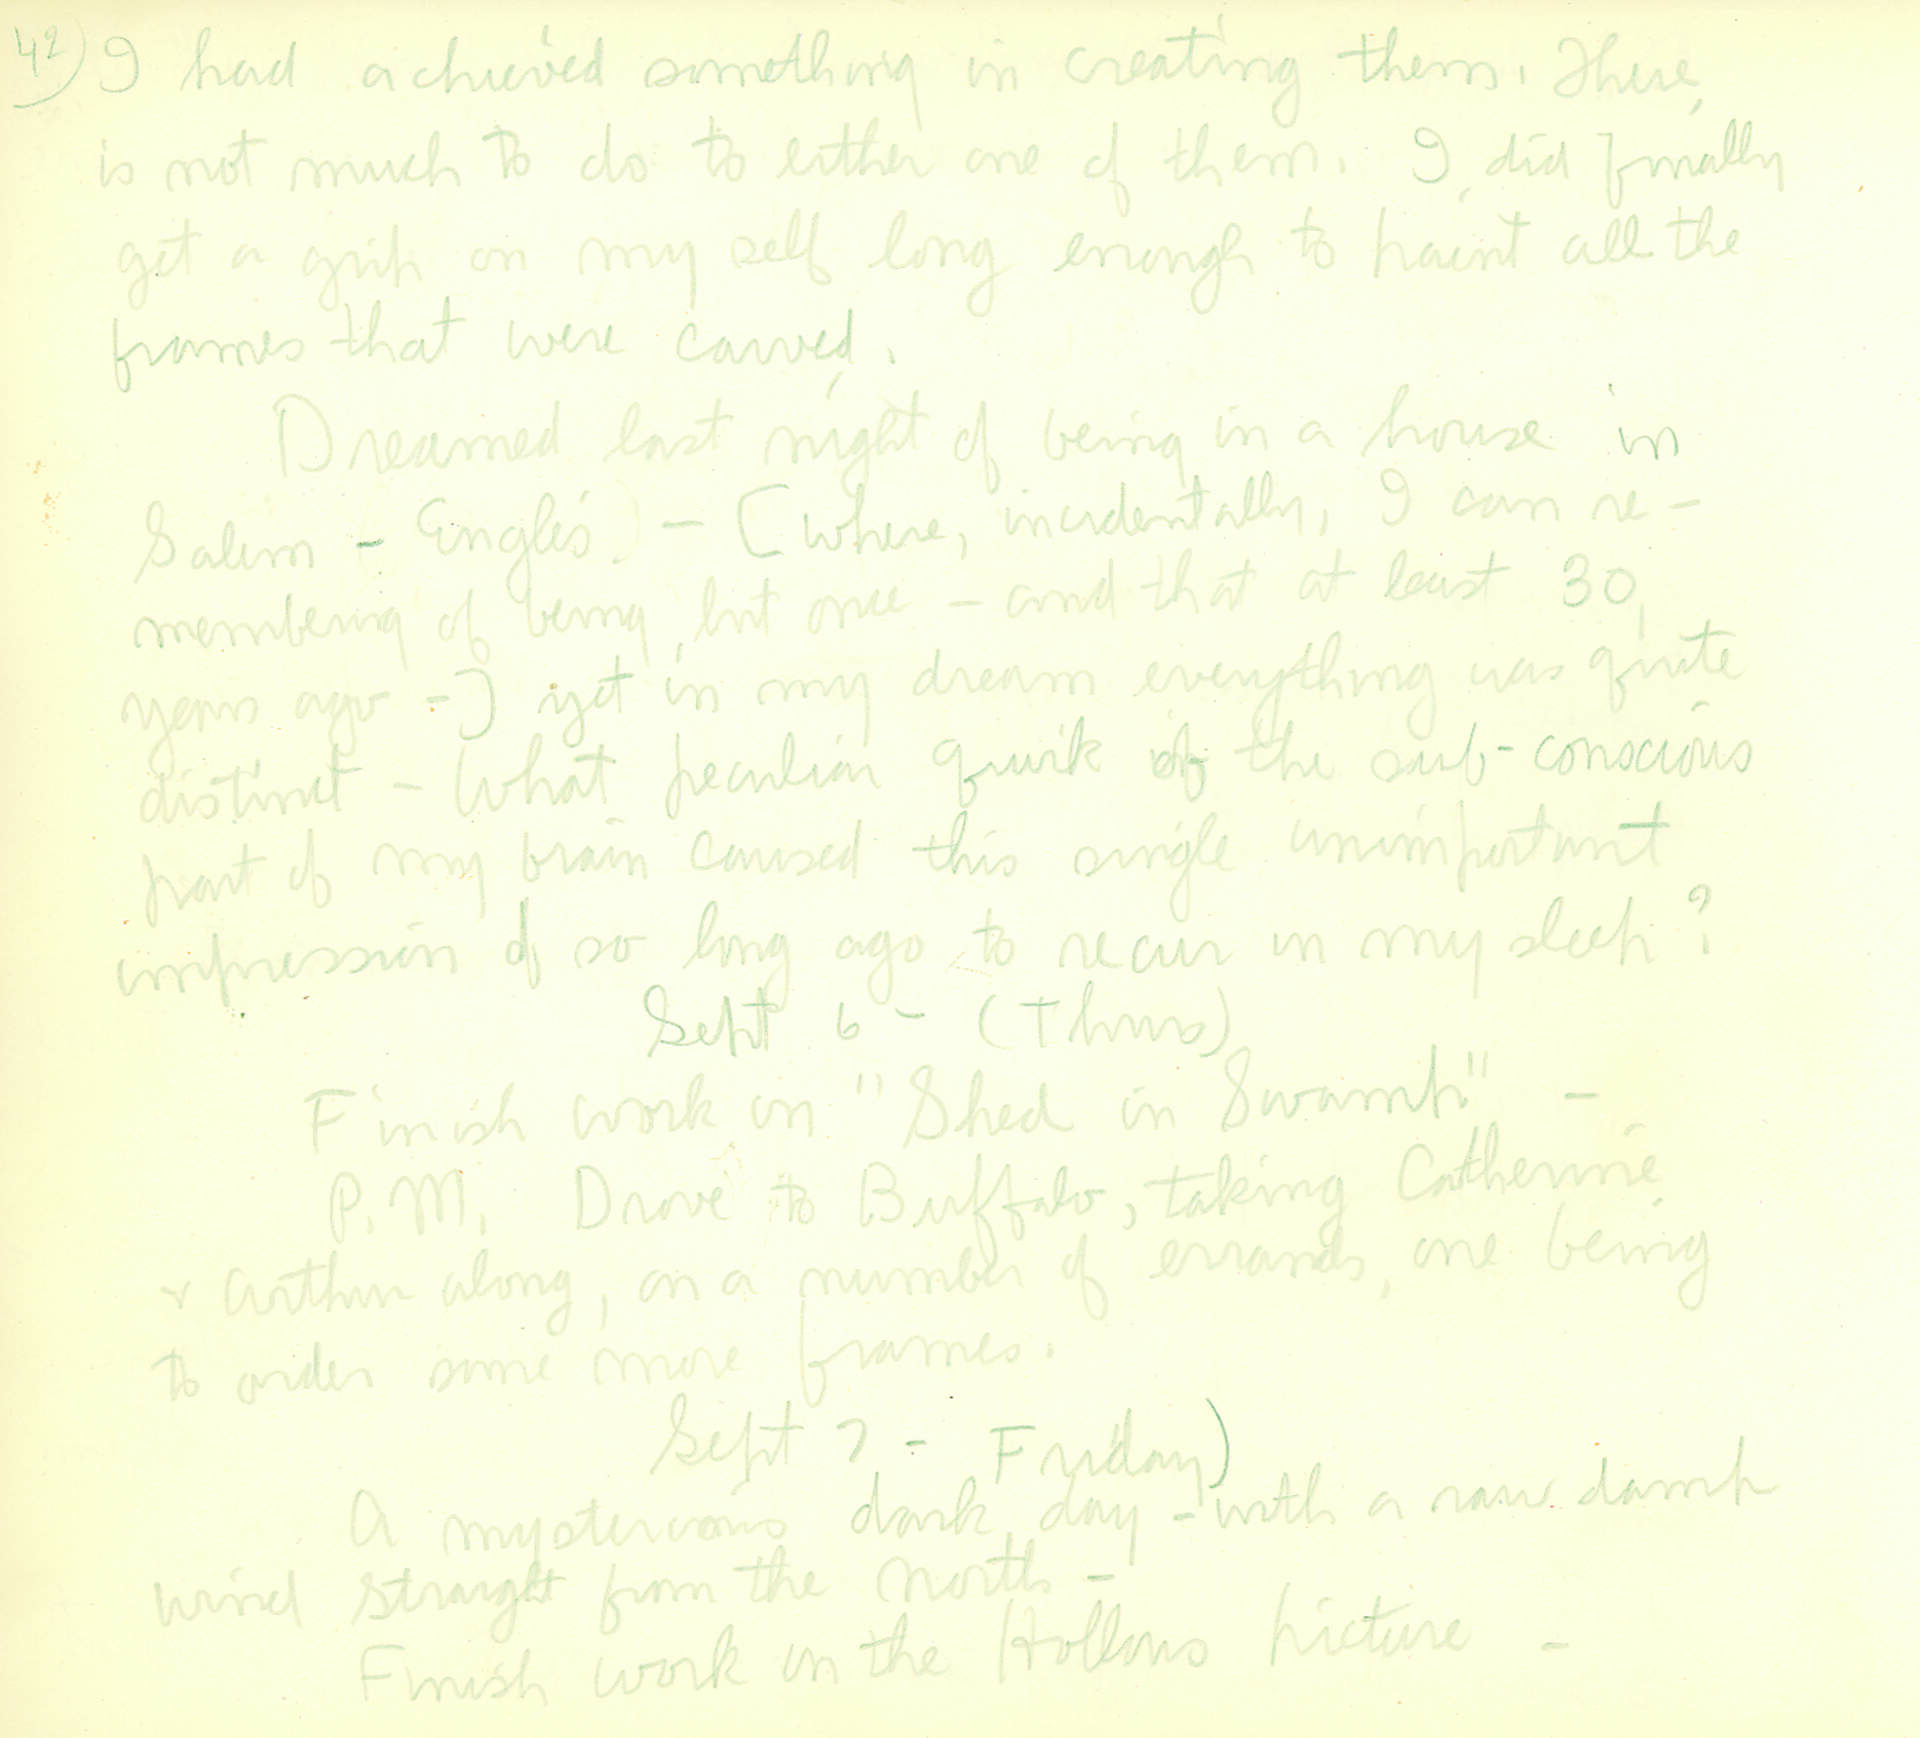 42) I had achieved something in creating them. There
is not much to do to either one of them. I did finally
get a grip on my self long enough to paint all the
frames that were carved.
Dreamed last night of being in a house in
Salem - (Engles) - [where, incidentally, I can re-
membering of being but once - and that at least 30
years ago -] yet in my dream everything was quite
distinct - What peculiar quirk of the sub-conscious
part of my brain caused this single unimportant
impression of so long ago to recur in my sleep?
Sept 6 - (Thurs)
Finish work on "Shed in Swamp" -
P.M. Drove to Buffalo, taking Catherine
+ Arthur along, on a number of errands, one being
to order some more frames.
Sept 7 - Friday)
A mysterious dark day - with a raw damp
wind straight from the north -
Finish work on the Hollows picture -